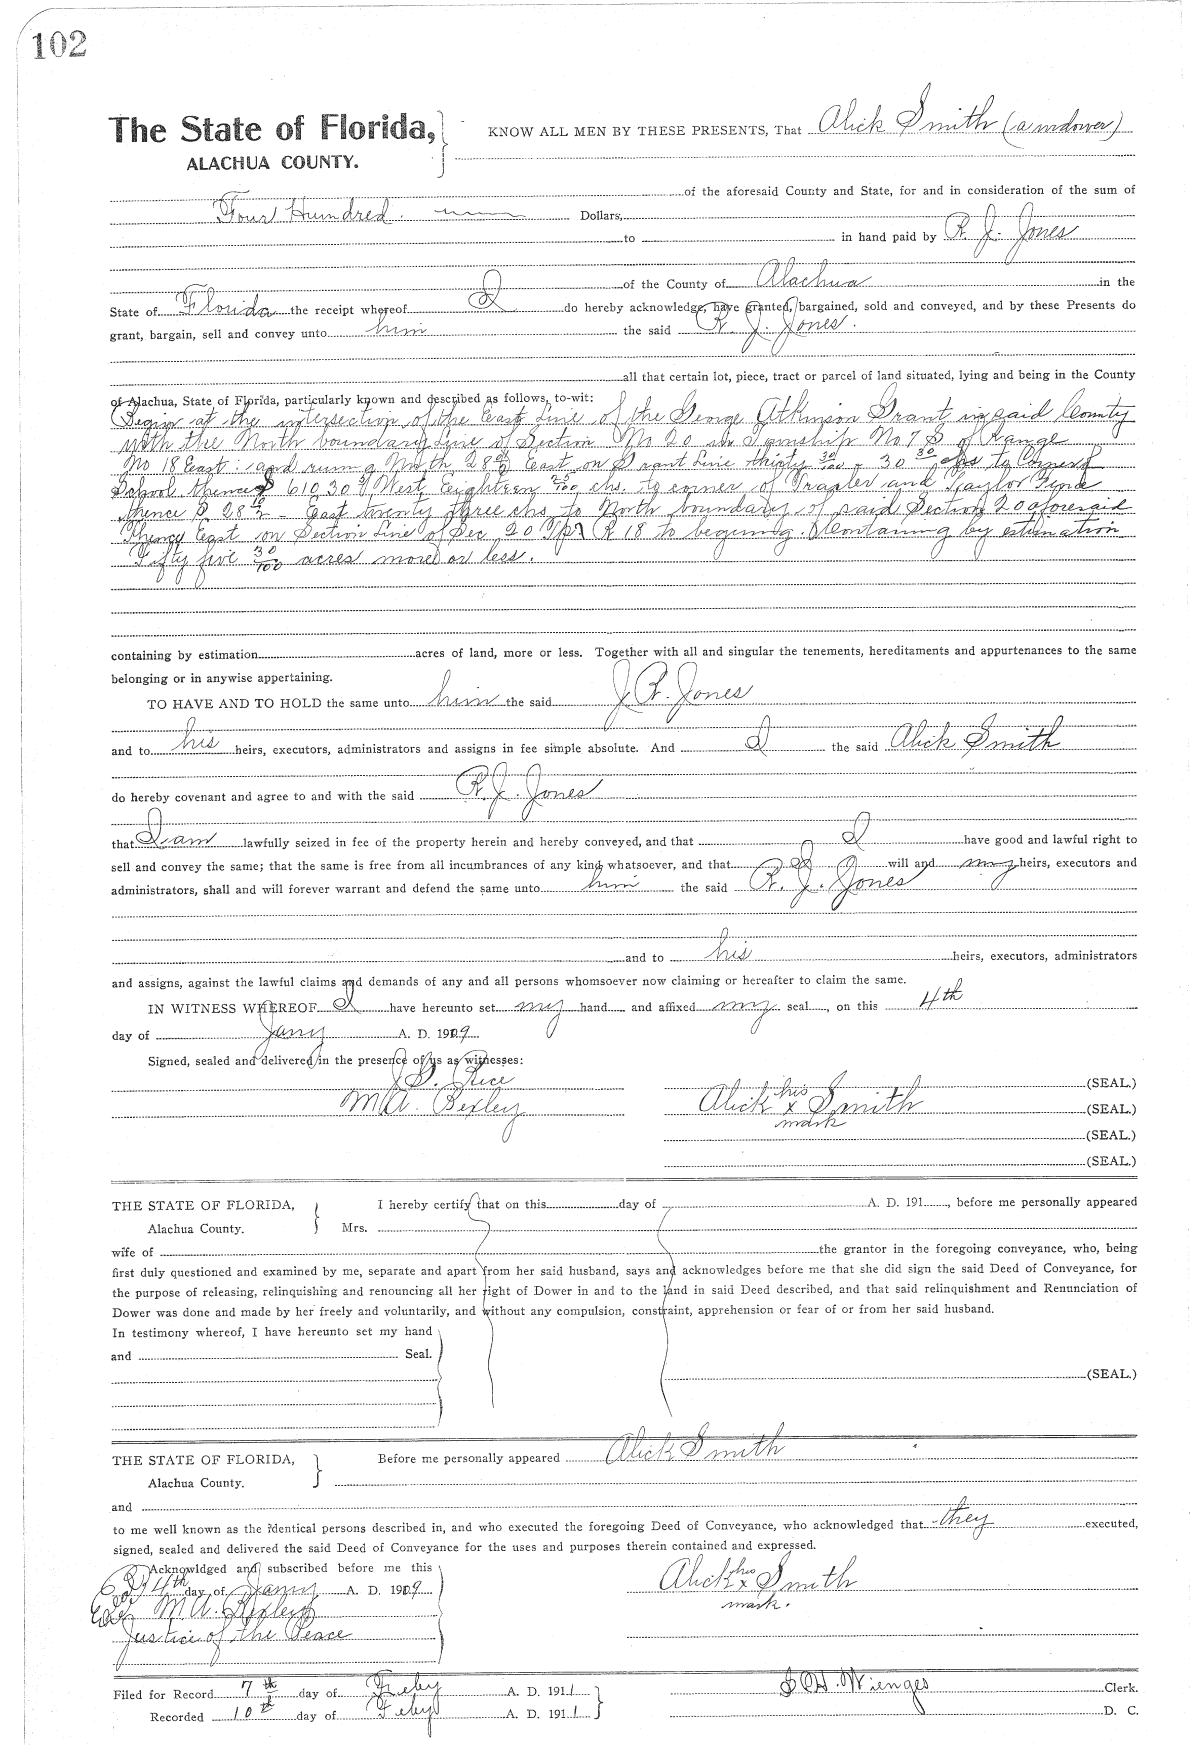 102
The State of Florida, KNOW ALL MEN BY THESE PRESENTS, That Alick Smith (a widower)
ALACHUA COUNTY.
of the aforesaid County and State, for and in consideration of the sum of
Four Hundred Dollars,
to in hand paid by R. J. Jones
of the County of Alachua in the
State of Florida the receipt whereof I do hereby acknowledge, have granted, bargained, sold and conveyed, and by these Presents do
grant, bargain, sell and convey unto him the said R. J. Jones.
all that certain lot, piece, tract or parcel of land situated, lying and being in the County
of Alachua, State of Florida, particularly known and described as follows, to-wit:
Begin at the intersection of the East Line of the George Atkinson Grant in said County
with the North boundary Line of Section No 20 in Township No 7 S of Range
No 18 East: and runing North 28 East on Grant Line thirty 30/100 - 30 30/100 chs to Corner of
School thence S 61 0 30 West Eighteen 25/100 chs. to corner of and Taylor
thence S 28 1/2 - East twenty three chs to North boundary of said Section 20 aforesaid
Thence East on Section Line of Sec 20 Tp 7 R 18 to begining. Containing by estimation
Fifty five 30/100 acres more or less.
containing by estimation acres of land, more or less. Together with all and singular the tenements, hereditaments and appurtenances to the same
belonging or in anywise appertaining.
TO HAVE AND TO HOLD the same unto him the said J. R. Jones
and to his heirs, executors, administrators and assigns in fee simple absolute. And I the said Alick Smith
do hereby covenant and agree to and with the said R. J. Jones
that I am lawfully seized in fee of the property herein and hereby conveyed, and that I have good and lawful right to
sell and convey the same; that the same is free from all incumbrances of any kind whatsoever, and that I will and my heirs, executors and
administrators, shall and will forever warrant and defend the same unto him the said R. J. Jones
and to his heirs, executors, administrators
and assigns, against the lawful claims and demands of any and all persons whomsoever now claiming or hereafter to claim the same.
IN WITNESS WHEREOF I have hereunto set my hand and affixed my seal, on this 4th
day of Jany A. D. 1909
Signed, sealed and delivered in the presence of us as witnesses:
J. G. Rice (SEAL.)
M A. Bexley Alick his x mark Smith (SEAL.)
(SEAL.)
(SEAL.)
THE STATE OF FLORIDA, I hereby certify that on this day of A. D. 191 , before me personally appeared
Alachua County. Mrs.
wife of the grantor in the foregoing conveyance, who, being
first duly questioned and examined by me, separate and apart from her said husband, says and acknowledges before me that she did sign the said Deed of Conveyance, for
the purpose of releasing, relinquishing and renouncing all her right of Dower in and to the land in said Deed described, and that said relinquishment and Renunciation of
Dower was done and made by her freely and voluntarily, and without any compulsion, constraint, apprehension or fear of or from her said husband.
In testimony whereof, I have hereunto set my hand
and Seal.
(SEAL.)
THE STATE OF FLORIDA, Before me personally appeared Alick Smith
Alachua County.
and
to me well known as the identical persons described in, and who executed the foregoing Deed of Conveyance, who acknowledged that they executed,
signed, sealed and delivered the said Deed of Conveyance for the uses and purposes therein contained and expressed.
Acknowldged and subscribed before me this
4th day of Jany A. D. 1909 Alick his x mark. Smith
M A. Bexley
Justice of the Peace
Filed for Record 7th day of Feby A. D. 1911 S. H. Wienges Clerk.
Recorded 10th day of Feby A. D. 1911 D. C.